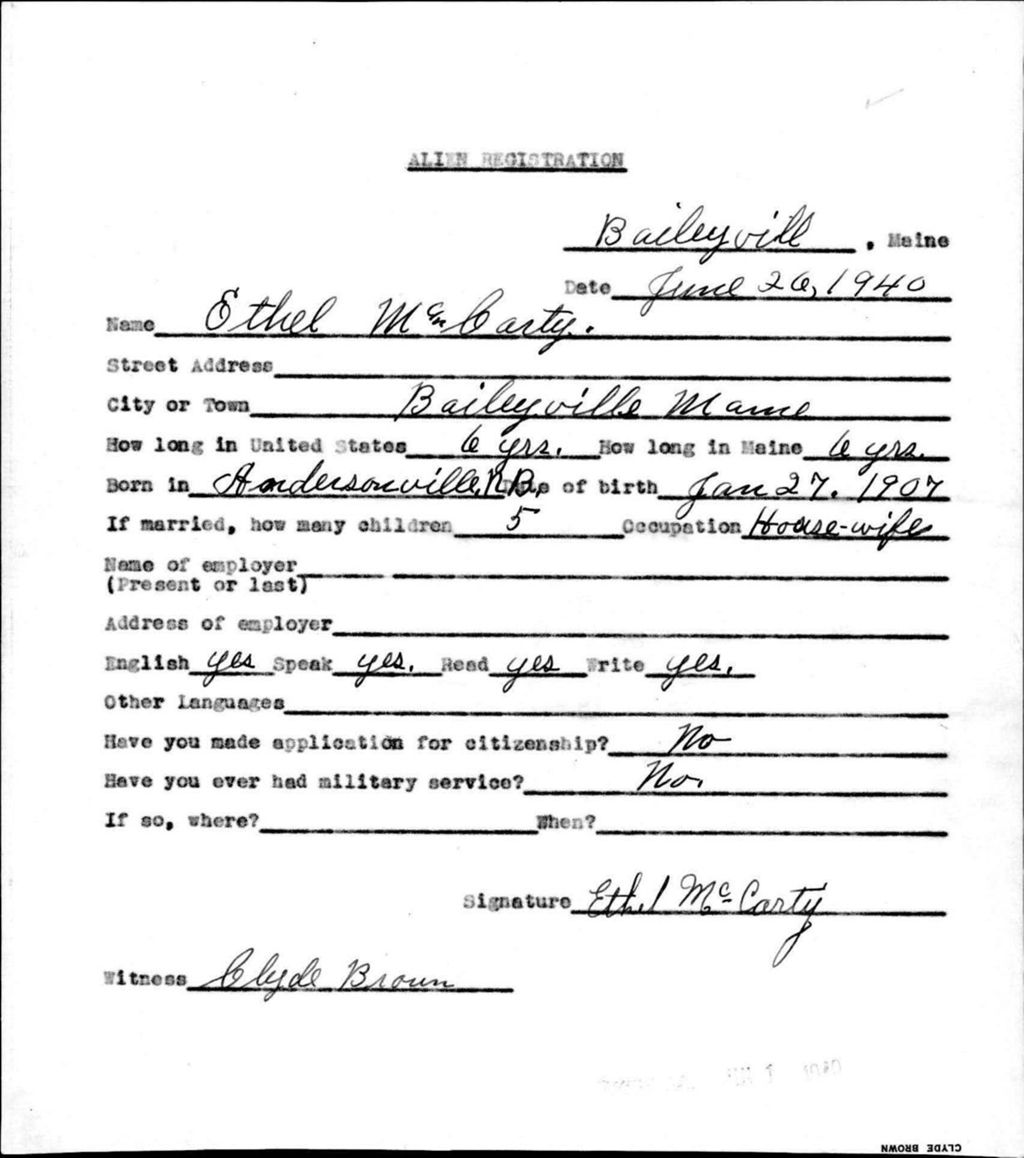 ALIEN REGISTRATION
Baileyvill, Maine
Date June 26, 1940
Name Ethel McCarty.
Street Address
City or Town Baileyville Maine
How long in United States 6 yrs. How long in Maine 6 yrs.
Born in Andersonville, N.B. Date of birth Jan 27. 1907
If married, how many children 5 Occupation House-wife
Name of employer
(Present or last)
Address of employer
English yes Speak yes. Read yes Write yes.
Other Languages
Have you made application for citizenship? No
Have you ever had military service? No.
If so, where? When?
Signature Ethel McCarty
Witness Clyde Brown
CLYDE BROWN